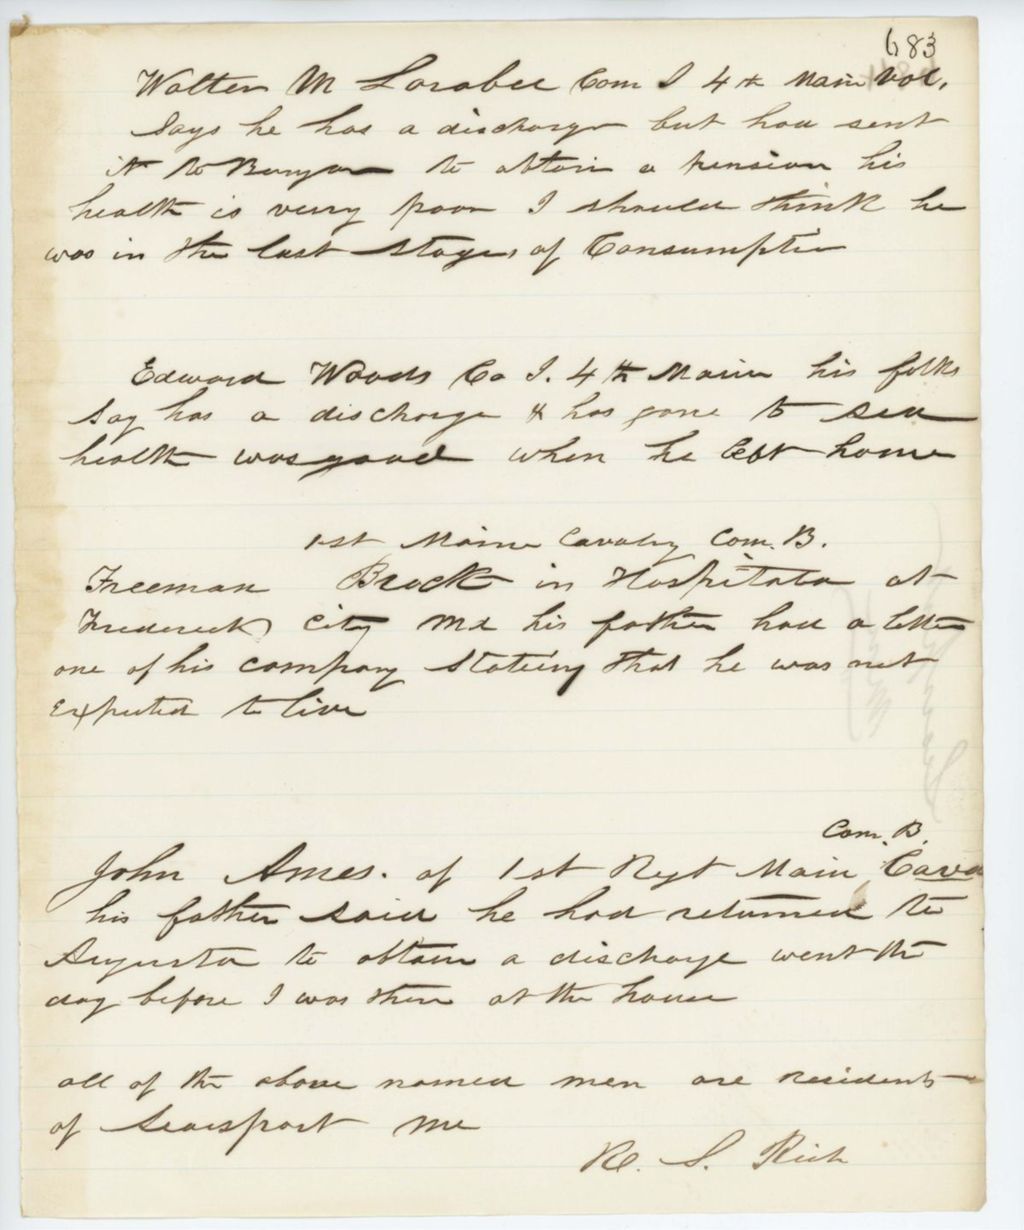 683
Walter M Larabee Com I 4th Main Vol.
Says he has a discharge but had sent
it to Bangor to obtain a pension his
health is very poor I should think he
was in the last stages of Consumption
Edward Woods Co I. 4th Maine his folks
Say has a discharge & has gone to sea
health was good when he left home
1st Maine Cavalry Com. B.
Freeman Brock in Hospital at
Frederick City Md his father had a letter
one of his company stateing that he was not
Expected to live
Com. B.
John Ames. of 1st Regt Main Cava
his father said he had returned to
Augusta to obtain a discharge went the
day before I was there at the house
all of the above named men are residents
of Searsport Me
R. S. Rich